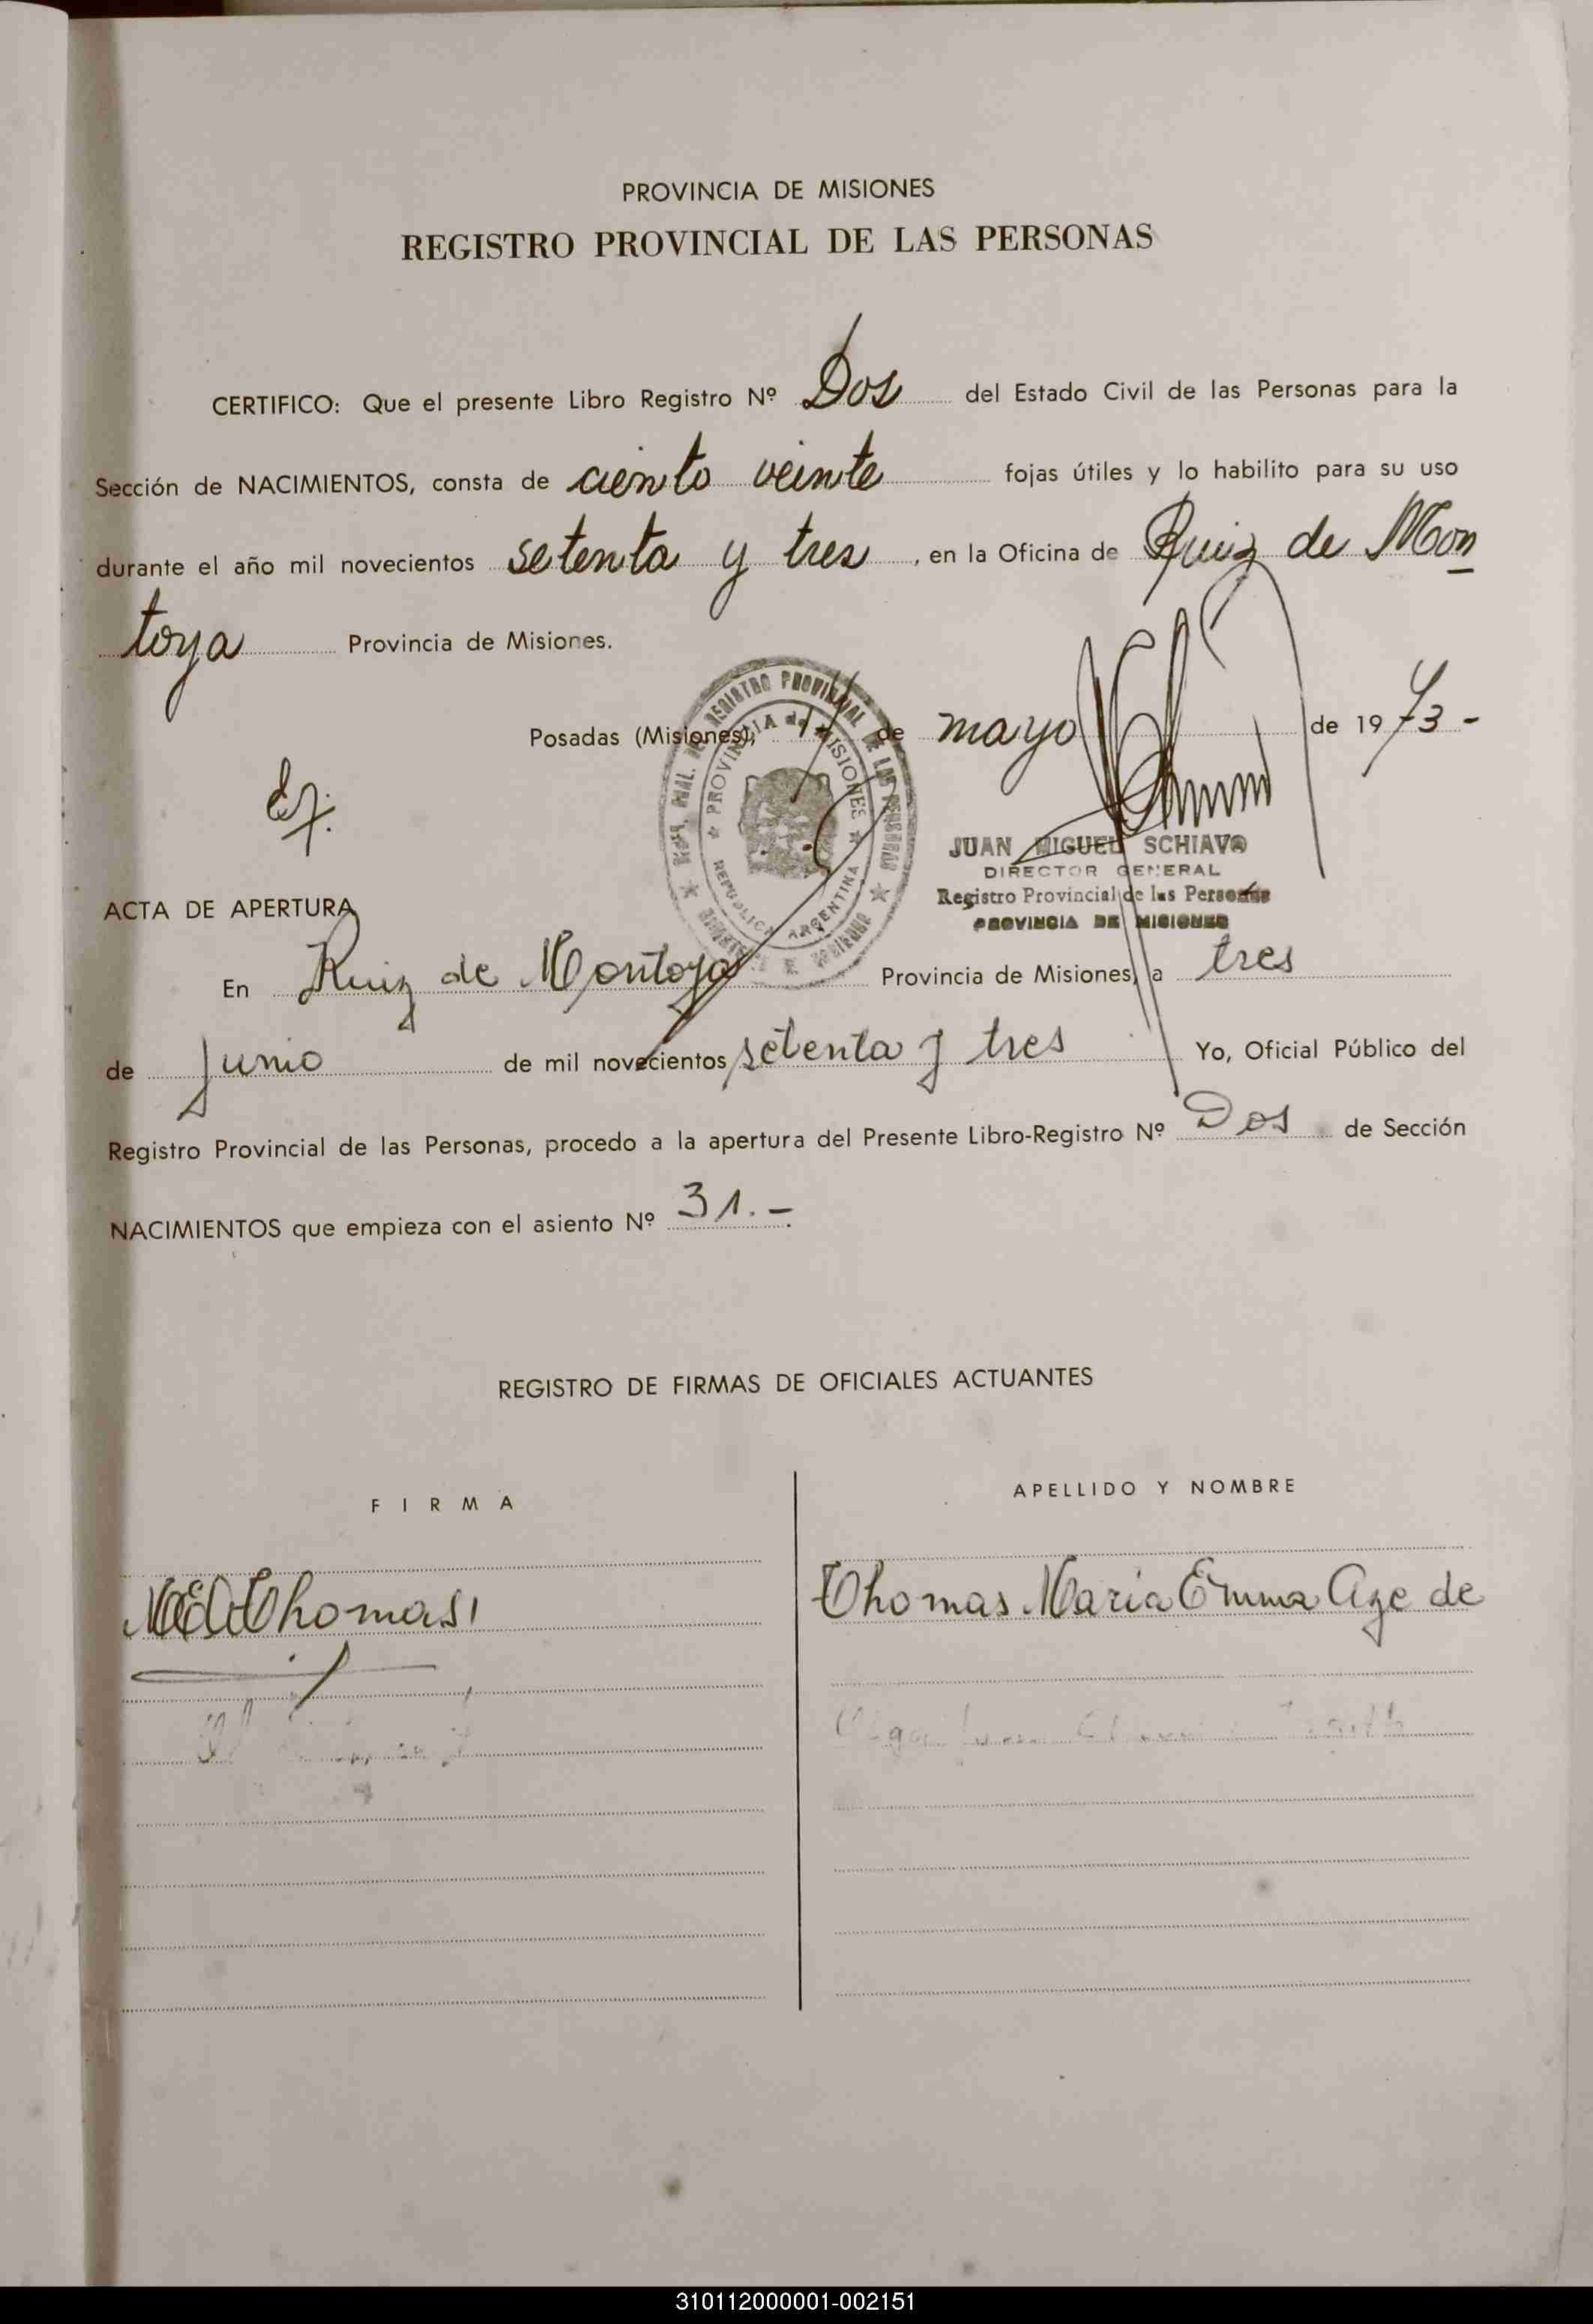 PROVINCIA DE MISIONES
REGISTRO PROVINCIAL DE LAS PERSONAS
CERTIFICO: Que el presente Libro Registro Nº Dos del Estado Civil de las Personas para la
Sección de NACIMIENTOS, consta de ciento veinte fojas útiles y lo habilito para su uso
durante el año mil novecientos setenta y tres, en la Oficina de Ruiz de Mon
toya Provincia de Misiones.
Posadas (Misiones), de mayo de 1973-
REGISTRO PROVINCIAL DE LAS PERSONAS
PROVINCIA de MISIONES
REPUBLICA ARGENTINA
JUAN MIGUEL SCHIAVO
DIRECTOR GENERAL
Registro Provincial de las Personas
PROVINCIA DE MISIONES
ACTA DE APERTURA
En Ruiz de Montoya Provincia de Misiones, a tres
de Junio de mil novecientos setenta y tres Yo, Oficial Público del
Registro Provincial de las Personas, procedo a la apertura del Presente Libro-Registro Nº Dos de Sección
NACIMIENTOS que empieza con el asiento Nº 31.-
REGISTRO DE FIRMAS DE OFICIALES ACTUANTES
FIRMA
APELLIDO Y NOMBRE
Thomas
Thomas Maria Emma Aze de
Olga
310112000001-002151